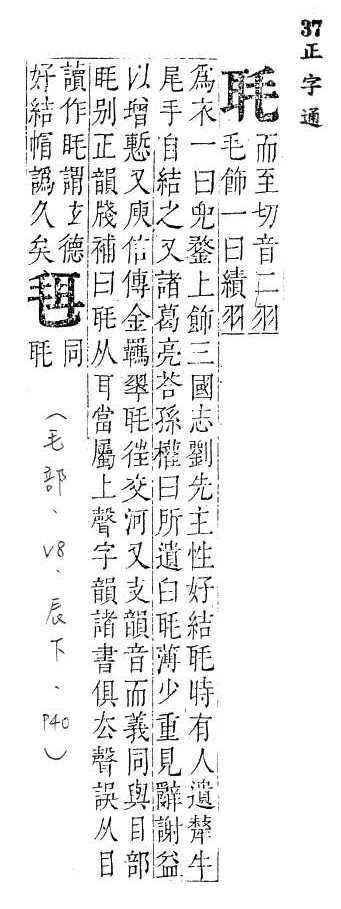 37正字通
毦
而至切音二羽
毛飾一曰績羽
爲衣一曰兜鍪上飾三國志劉先主性好結毦時有人遺犛牛
尾手自結之又諸葛亮荅孫權曰所遺白毦薄少重見辭謝益
以增慙又庾信傳金羈翠毦徃交河又支韻音而義同與目部
眊别正韻牋補曰毦从耳當屬上聲字韻諸書俱厺聲誤从目
讀作眊謂玄德
好結帽譌久矣
毦
同
毦
（毛部、V8、辰下、P40）